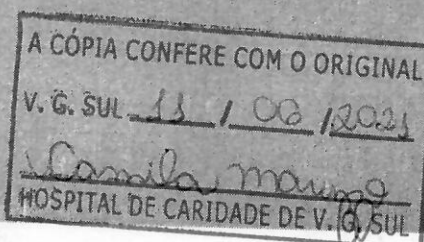 A CÓPIA CONFERE COM O ORIGINAL
V. G. SUL 11 / 06 / 2021
Camila
HOSPITAL DE CARIDADE DE V. G. SUL